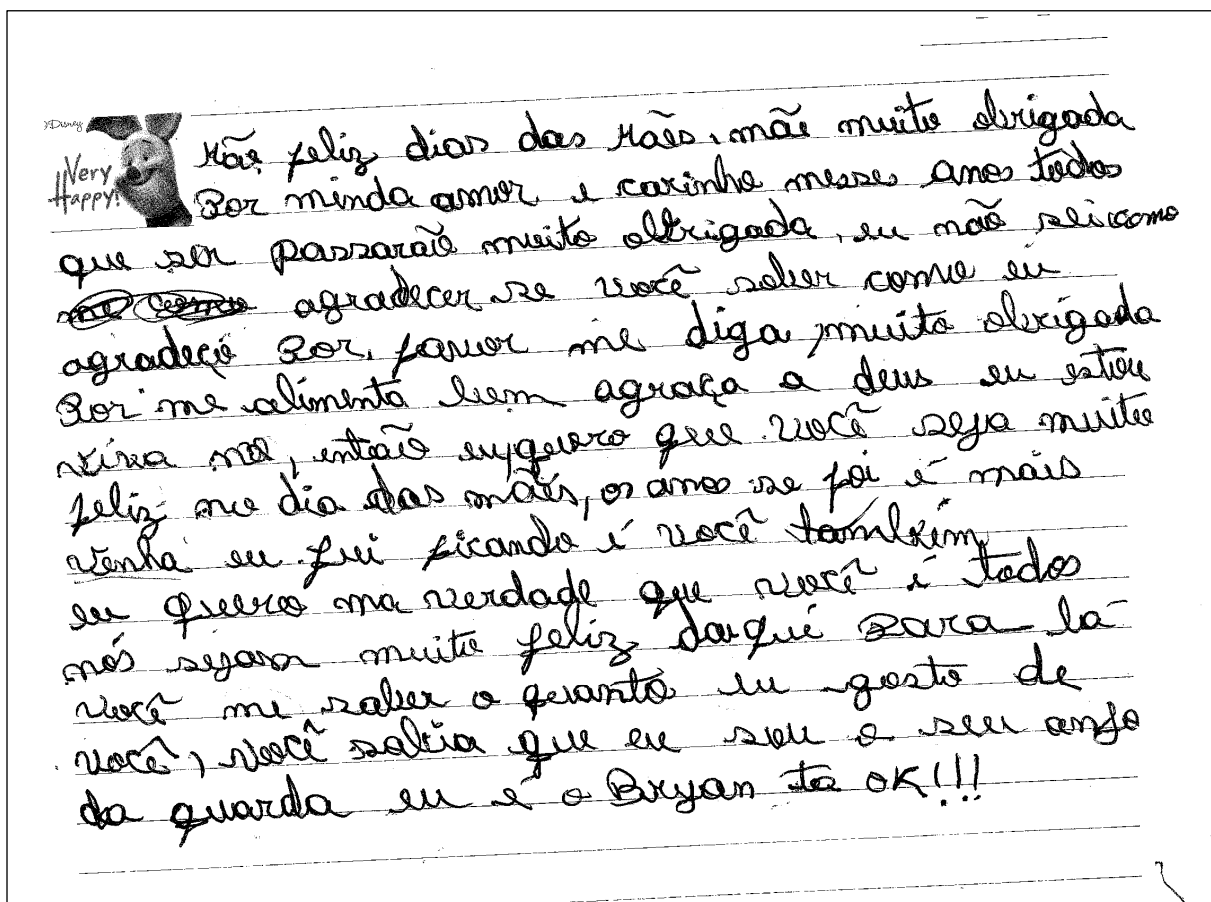 Disney
Very
Happy!
Mãe, feliz dias das Mães, mãe muito obrigada
Por minda amor e carinho nesses anos todos
que ser passarão muito obrigada, eu não sei como
agradecer se você saber como eu
agradeçe Por, favor me diga, muito obrigada
Por me alimenta bem agraça a deus eu estou
viva né, então eu quero que você seja muito
feliz no dia das mães, os anos se foi é mais
venha eu fui ficando é você também
eu quero na verdade que você é todos
nós sejam muito feliz daqui para lá
você me saber o quanto eu gosto de
você, você sabia que eu sou o seu anjo
da guarda eu e o Bryan ta OK!!!